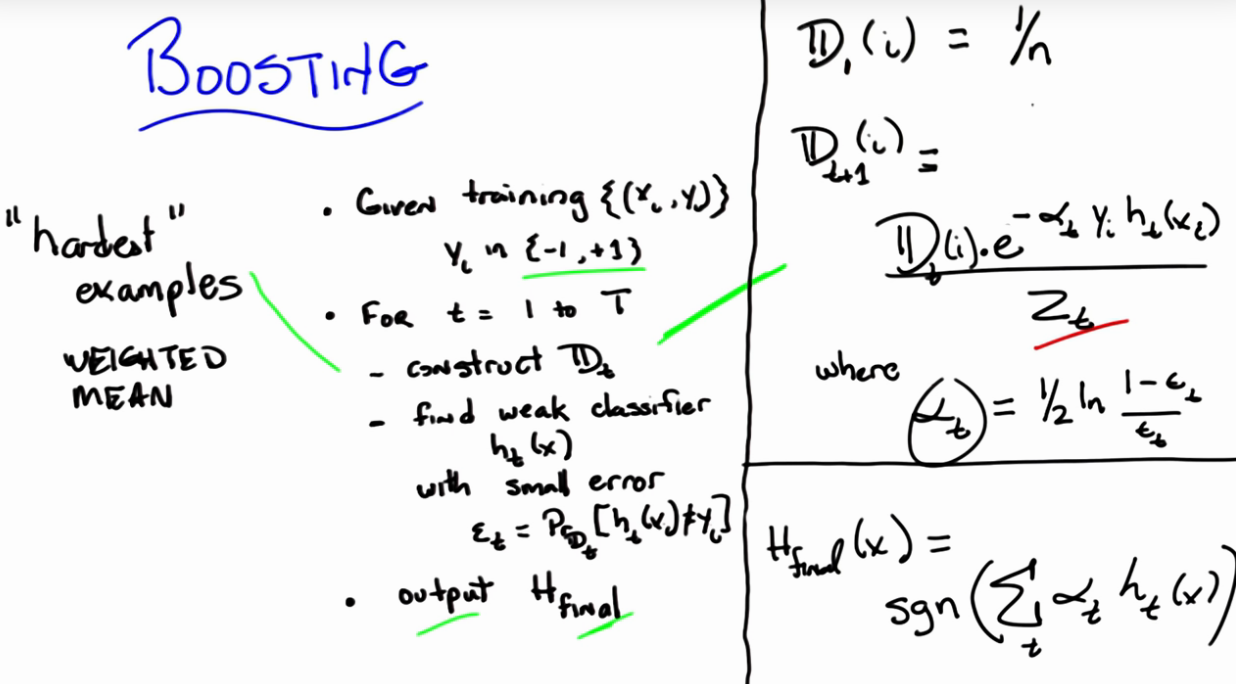 BOOSTING
"hardest"
examples
WEIGHTED
MEAN
• Given training {(xᵢ, yᵢ)}
yᵢ in {-1, +1}
• For t = 1 to T
- construct 𝔻ₜ
- find weak classifier
hₜ(x)
with small error
εₜ = Pr_𝔻ₜ [hₜ(xᵢ) ≠ yᵢ]
• output H_final
𝔻₁(i) = 1/n
𝔻ₜ₊₁(i) =
𝔻ₜ(i)·e^(-αₜ yᵢ hₜ(xᵢ))
Zₜ
where
αₜ = 1/2 ln (1-εₜ)/εₜ
H_final(x) =
sgn(∑ₜ αₜ hₜ(x))